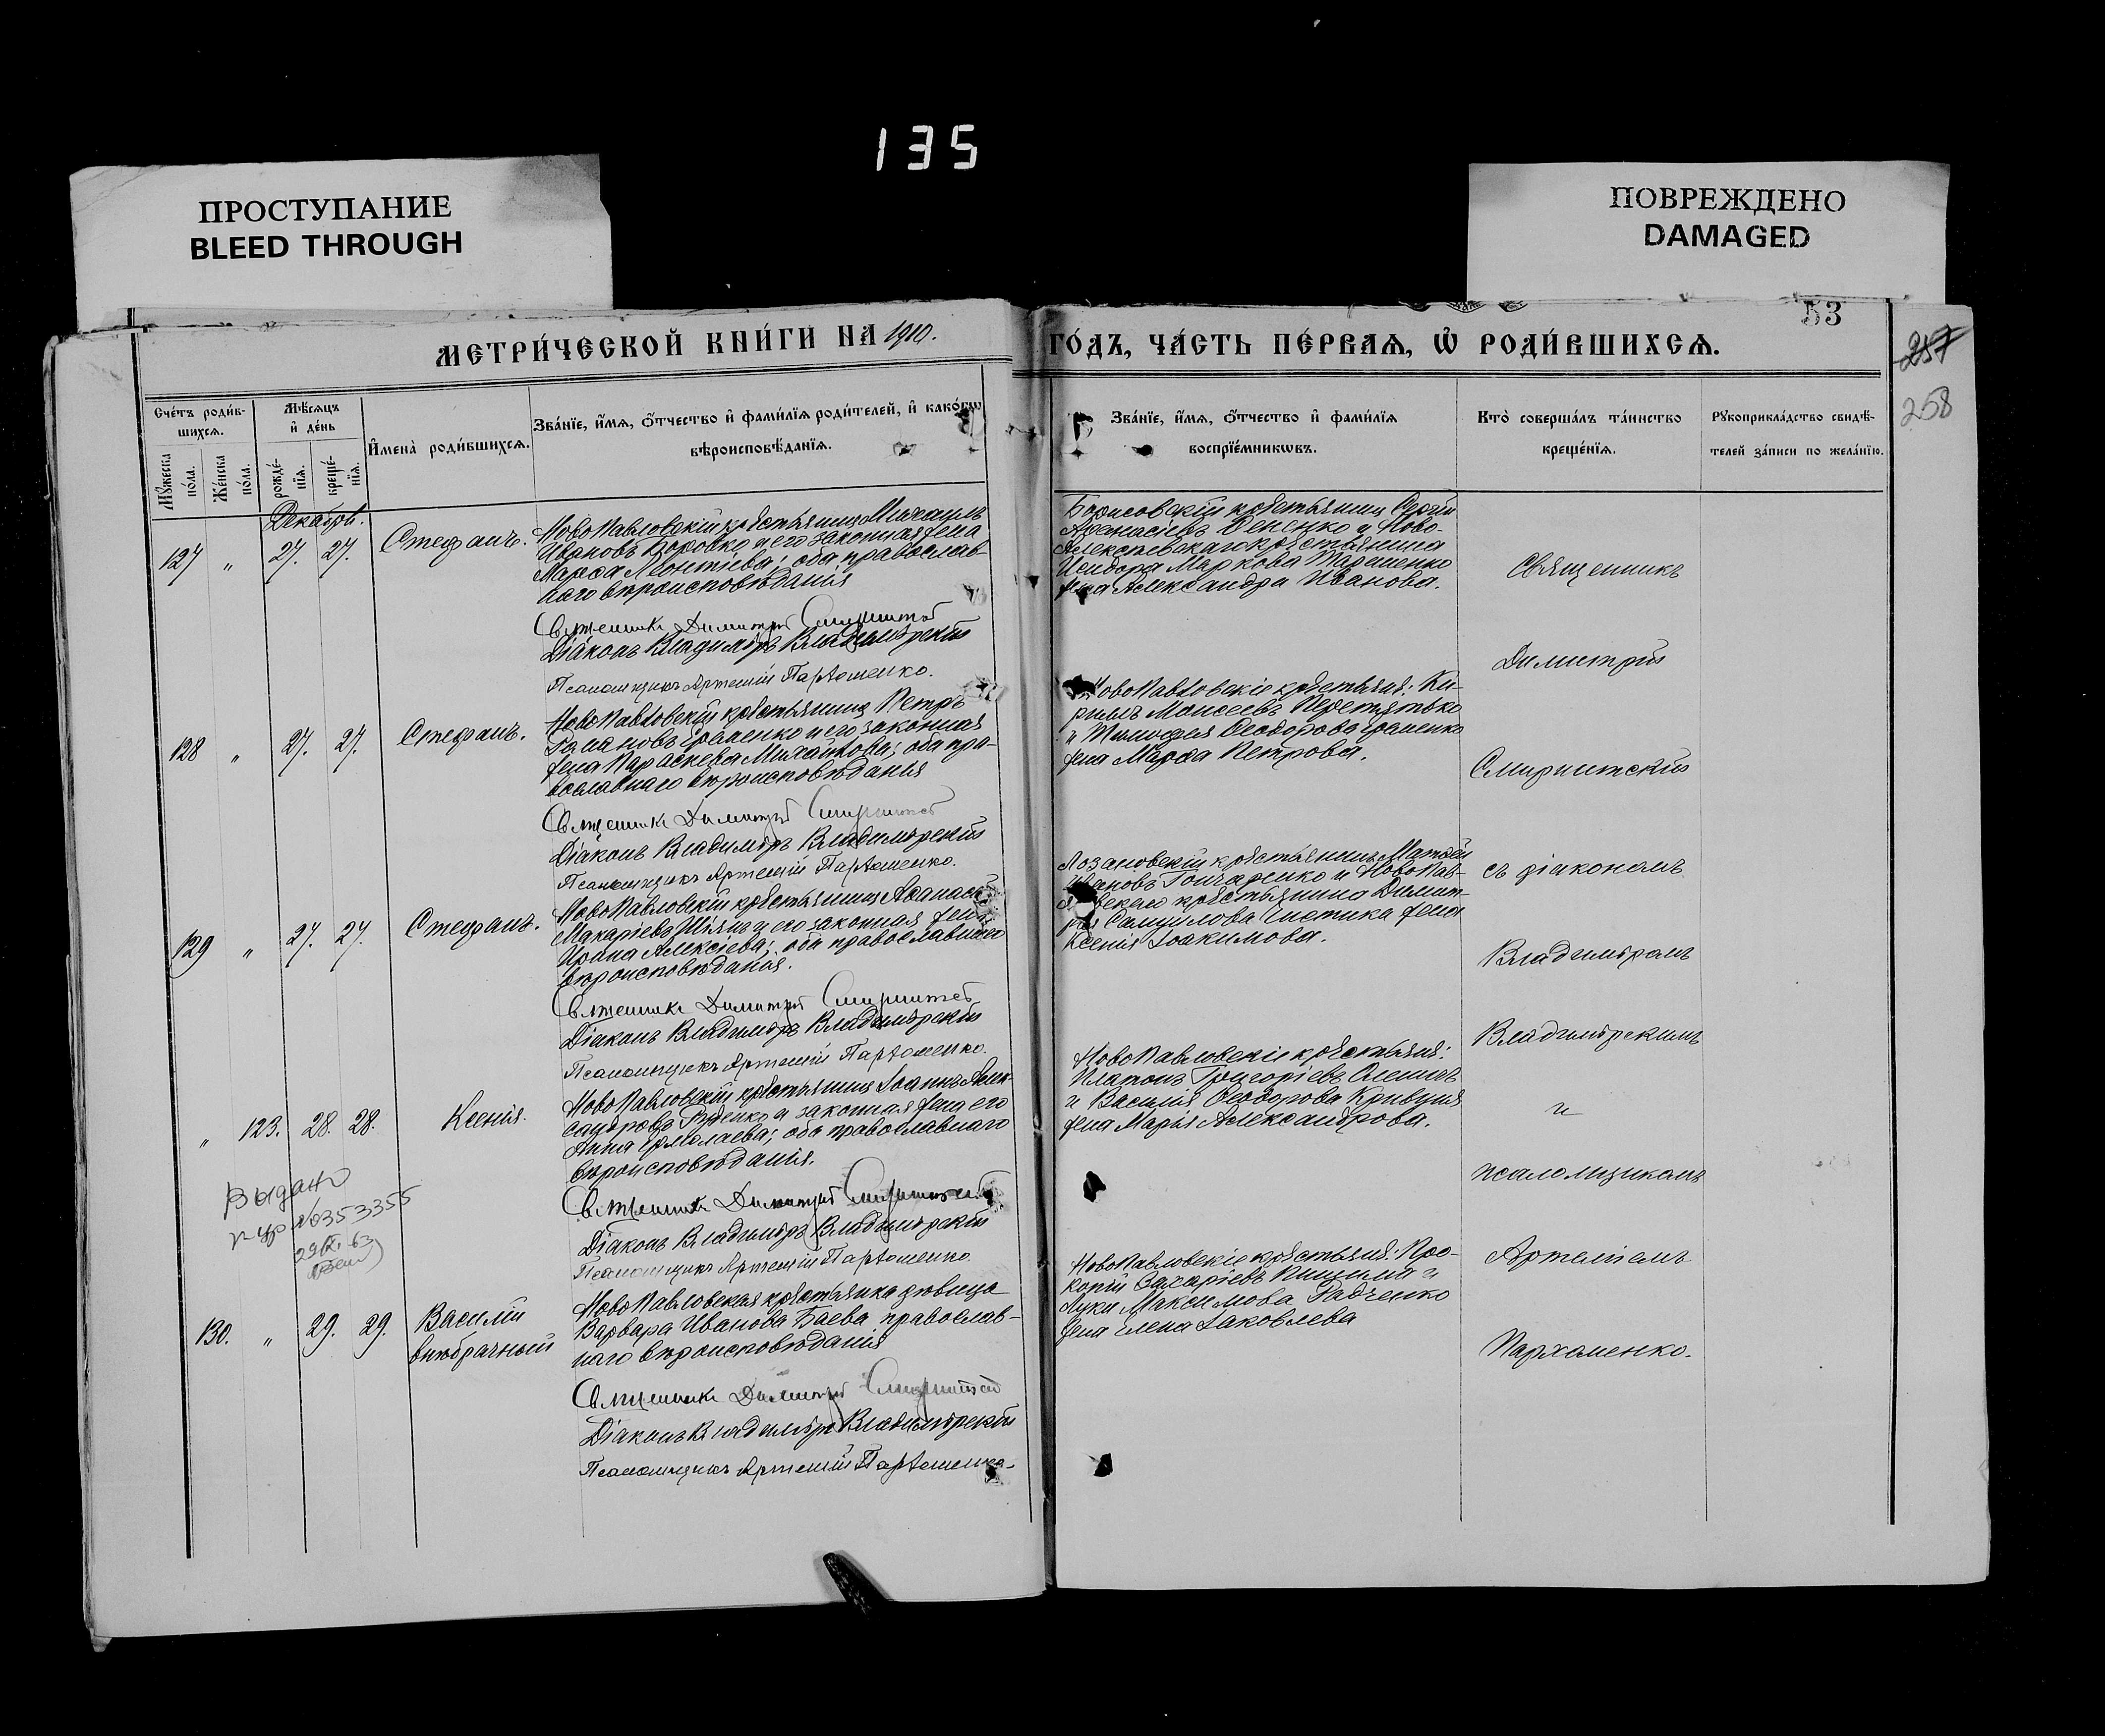 135
ПРОСТУПАНИЕ
BLEED THROUGH
ПОВРЕЖДЕНО
DAMAGED
53
257
258
МЕТРИ́ЧЕСКОЙ КНИ́ГИ НА 1910.
ГО́ДЪ, ЧА́СТЬ ПЕ́РВАѦ, Ѡ҆ РОДИ́ВШИХСѦ.
Сче́тъ роди́в-
шихсѧ.
Мѣ́сѧцъ
и҆ де́нь
И҆мена̀ роди́вшихсѧ.
Зва́нїе, и҆́мѧ, ѻ҆́тчество и҆ фами́лїѧ роди́телей, и҆ како́гѡ
вѣроисповѣ́данїѧ.
Мꙋ́жеска
по́ла.
Же́нска
по́ла.
рожде́-
нїѧ.
креще́-
нїѧ.
Зва́нїе, и҆́мѧ, ѻ҆́тчество и҆ фами́лїѧ
воспрїе́мникѡвъ.
Кто̀ соверша́лъ та́инство
креще́нїѧ.
Рꙋкоприкла́дство свидѣ́-
телей за́писи по жела́нїю.
Декабрь.
127 „ 27. 27. Стефанъ.
НовоПавловскій крестьянинъ Михаилъ
Ивановъ Коровко и его законная жена
Марѳа Леонтіева; оба православ-
наго вѣроисповѣданія
Священникъ Димитрій Смирнитскій
Діаконъ Владиміръ Владимірскій
Псаломщикъ Артемій Пархоменко.
Борисовскій крестьянинъ Сергій
Аѳанасіевъ и Ново-
Алексѣевскаго крестьянина
Исидора Маркова Тараненко
жена Александра Иванова.
128 „ 27. 27. Стефанъ.
НовоПавловскій крестьянинъ Петръ
Романовъ Еременко и его законная
жена Параскева Михайлова; оба пра-
вославнаго вѣроисповѣданія
Священникъ Димитрій Смирнитскій
Діаконъ Владиміръ Владимірскій
Псаломщикъ Артемій Пархоменко.
НовоПавловскіе крестьяне: Ки-
риллъ Моисеевъ Перетятько
и Тимофея Ѳеодорова Еременко
жена Марѳа Петрова.
129 „ 27. 27. Стефанъ.
НовоПавловскій крестьянинъ Аѳанасій
Макаріевъ и его законная жена
Ирина Алексіева; оба православнаго
вѣроисповѣданія.
Священникъ Димитрій Смирнитскій
Діаконъ Владиміръ Владимірскій
Псаломщикъ Артемій Пархоменко.
Лозановскій крестьянинъ Матѳей
Ивановъ Гончаренко и НовоПав-
ловскаго крестьянина Димит-
рія Самуилова Чистика жена
Ксенія Іоакимова.
„ 123. 28. 28. Ксенія.
НовоПавловскій крестьянинъ Іоаннъ Алек-
сандровъ и законная жена его
Анна Ермолаева; оба православнаго
вѣроисповѣданія.
Священникъ Димитрій Смирнитскій
Діаконъ Владиміръ Владимірскій
Псаломщикъ Артемій Пархоменко.
НовоПавловскіе крестьяне:
Платонъ Григоріевъ
и Василія Ѳеодорова Кривуля
жена Марія Александрова.
Выдано
№0353355
130. „ 29. 29. Василій
внѣбрачный
НовоПавловская крестьянка дѣвица
Варвара Иванова Баева православ-
наго вѣроисповѣданія
Священникъ Димитрій Смирнитскій
Діаконъ Владиміръ Владимірскій
Псаломщикъ Артемій Пархоменко.
НовоПавловскіе крестьяне: Про-
копій Захаріевъ и
Луки Максимова Радченко
жена Елена Іаковлева
Священникъ
Димитрій
Смирнитскій
съ діакономъ
Владиміромъ
Владимірскимъ
и
псаломщикомъ
Артеміемъ
Пархоменко.